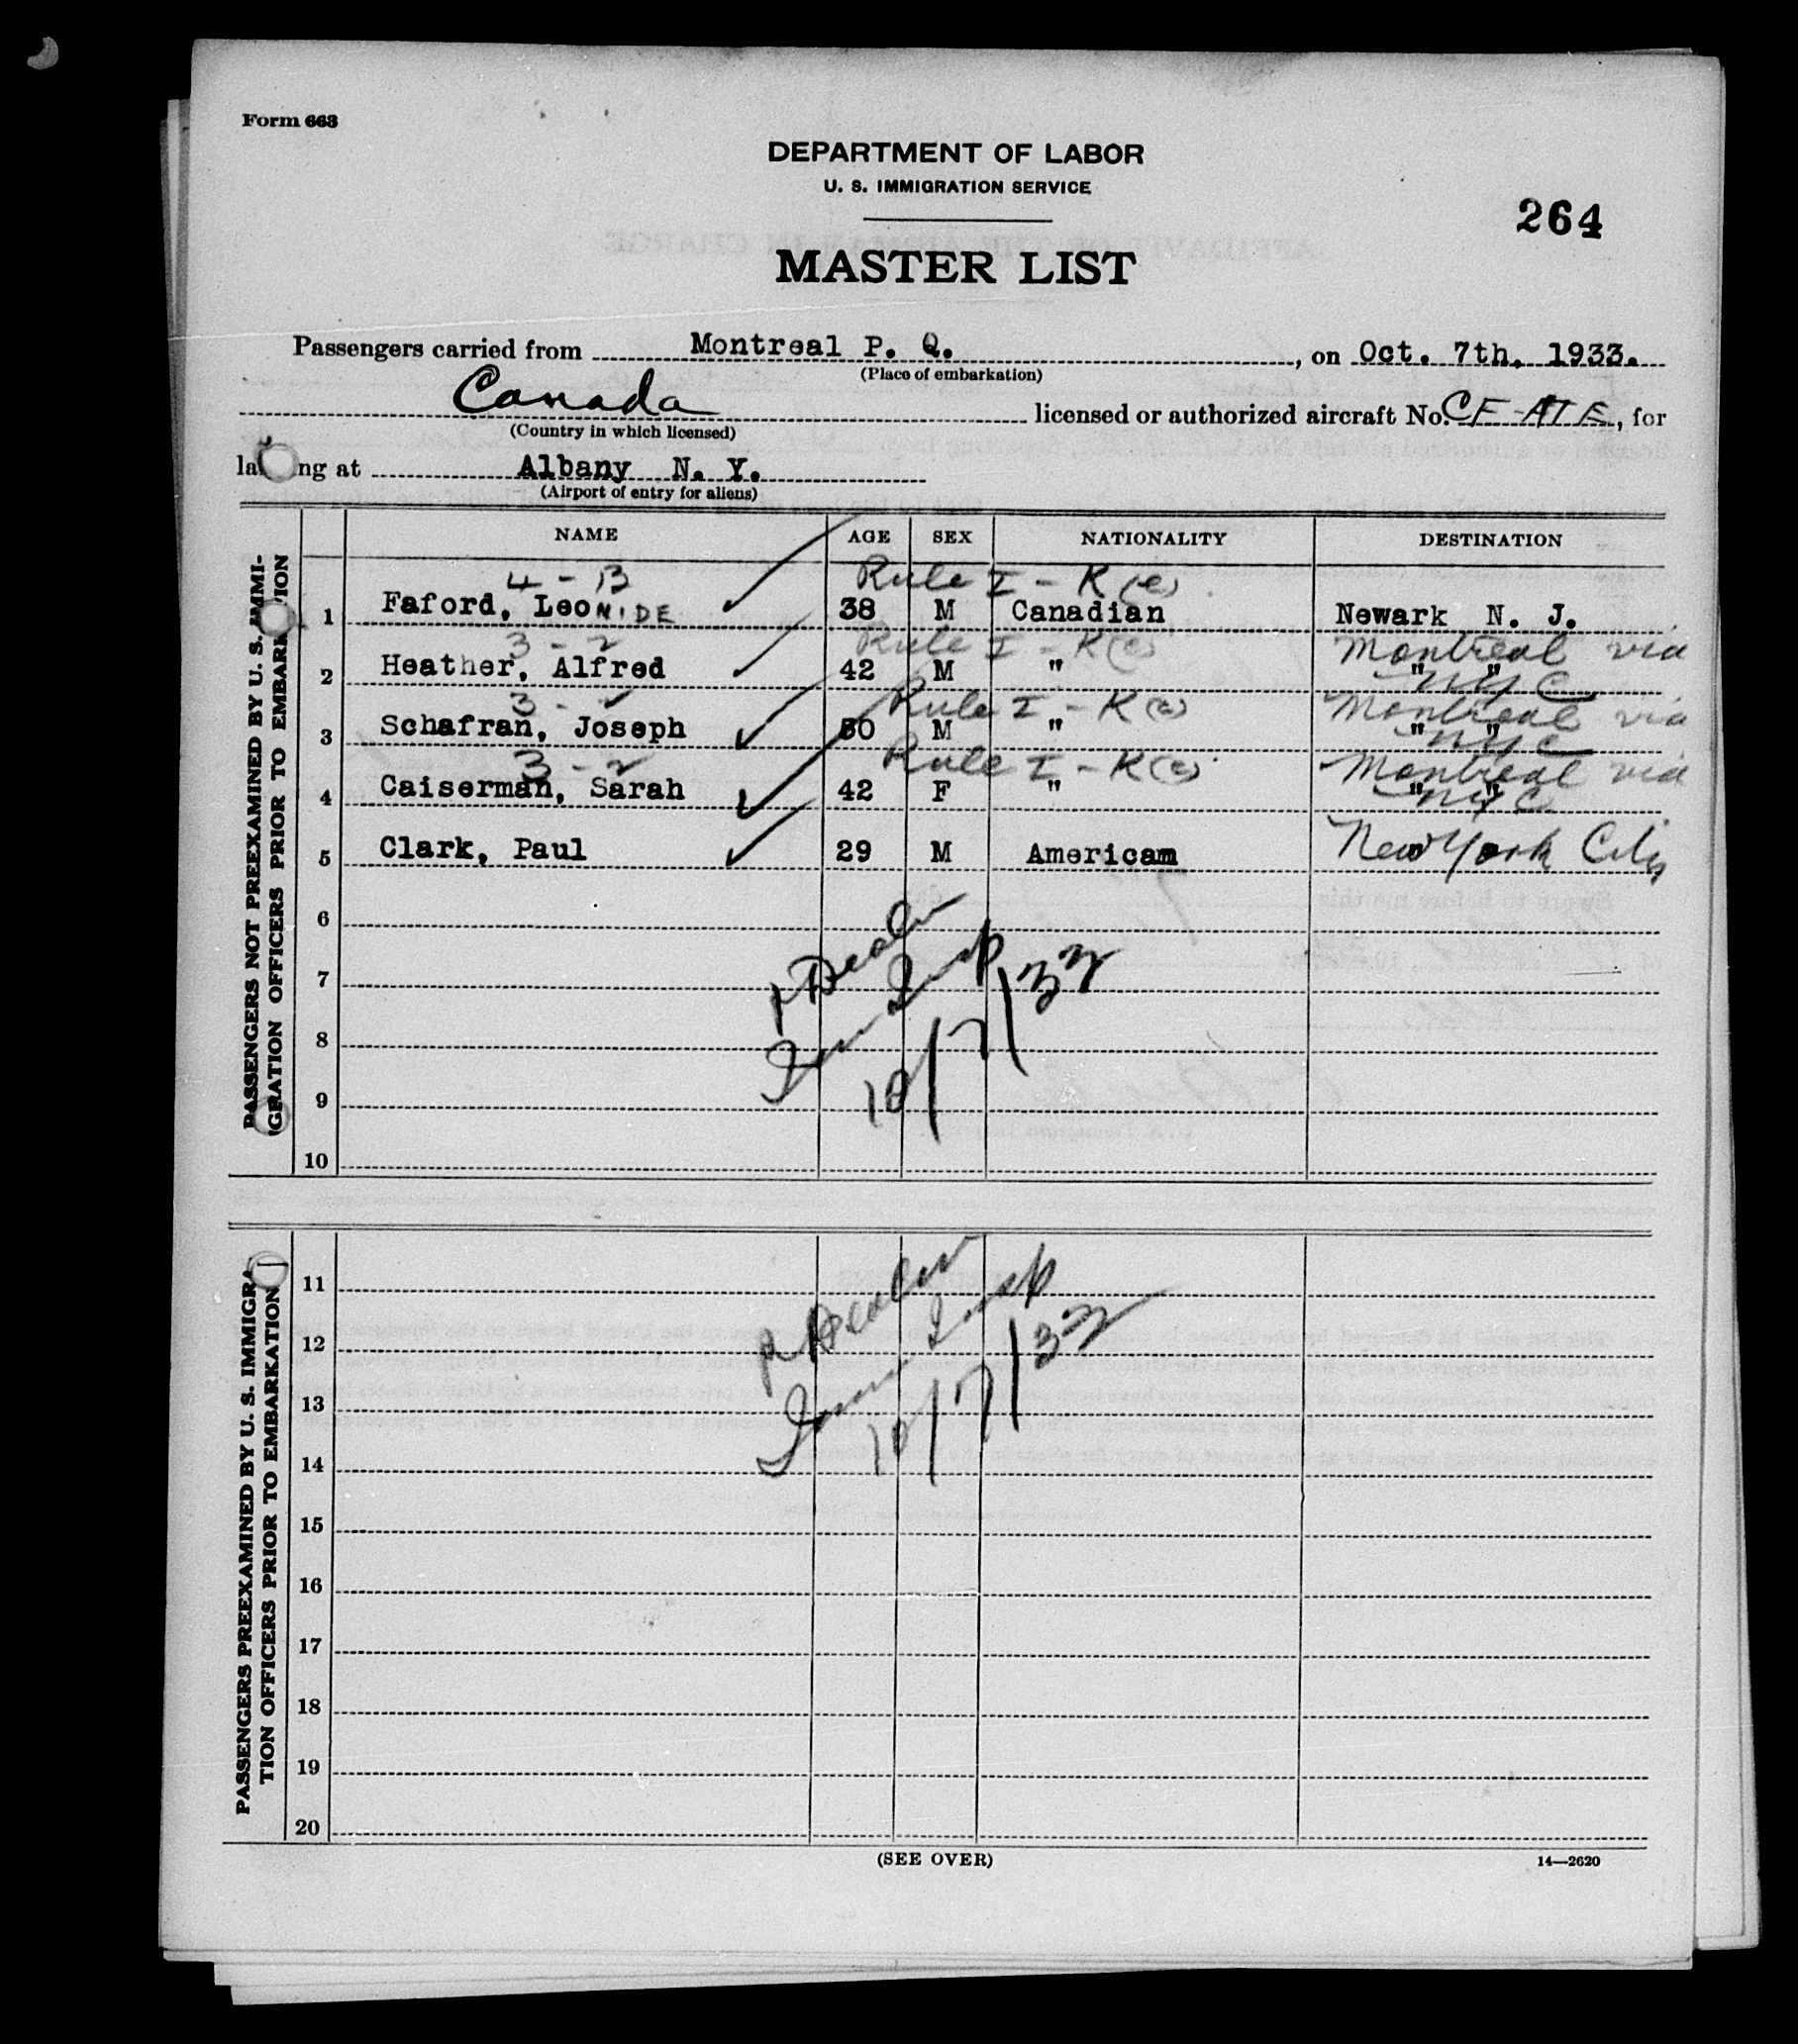 Form 663
DEPARTMENT OF LABOR
U. S. IMMIGRATION SERVICE
264
MASTER LIST
Passengers carried from Montreal P. Q., on Oct. 7th, 1933.
(Place of embarkation)
Canada licensed or authorized aircraft No. CF-ATE, for
(Country in which licensed)
la ng at Albany N. Y.
(Airport of entry for aliens)
PASSENGERS NOT PREEXAMINED BY U. S. IMMI-
GRATION OFFICERS PRIOR TO EMBARKATION
NAME AGE SEX NATIONALITY DESTINATION
4 - B Rule I - K (e)
1 Faford, LeoNIDE 38 M Canadian Newark N. J.
3 - 2 Rule I - K (e) Montreal via
2 Heather, Alfred 42 M " " " NYC
3 - Rule I - K (e) Montreal via
3 Schafran, Joseph 50 M " " " NYC
3 - 2 Rule I - K (e) Montreal via
4 Caiserman, Sarah 42 F " " " NYC
5 Clark, Paul 29 M Americam New York City
6
7
8
Insp
10/7/33
9
10
PASSENGERS PREEXAMINED BY U. S. IMMIGRA-
TION OFFICERS PRIOR TO EMBARKATION
11
12
13
Insp
10/7/33
14
15
16
17
18
19
20
(SEE OVER)
14—2620